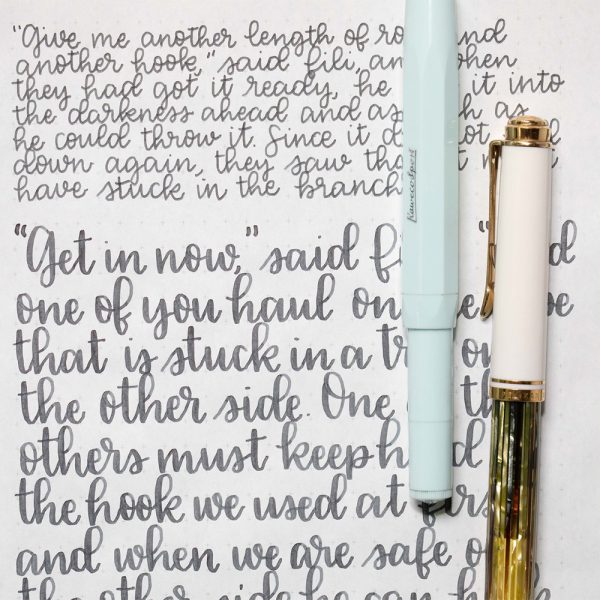 "Give me another length of
another hook," said fili,
they had got it ready, he it into
the darkness ahead and as as
he could throw it. Since it
down again, they saw
have stuck in the
Kaweco Sport
"Get in now," said
one of you haul
that is stuck in a
the other side. One
others must keep
the hook we used at
and when we are safe
the other side he can hook